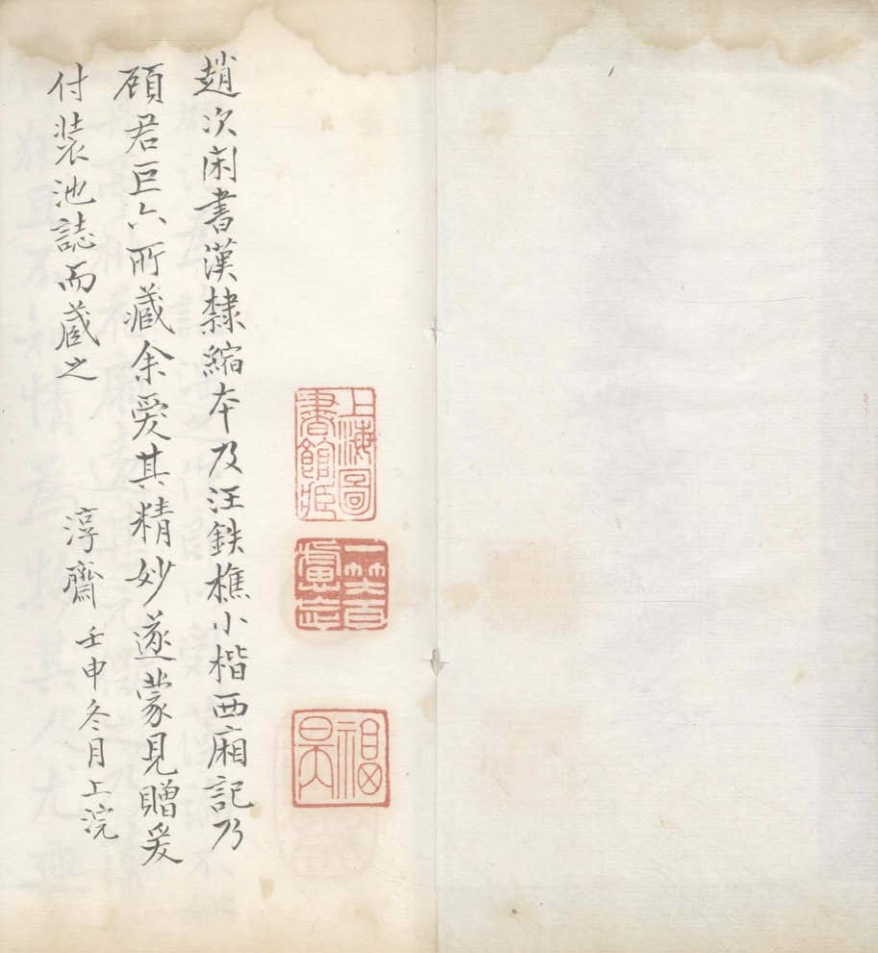 上海圖
書館藏
一笑百
慮忘
趙次閑書漢隸縮本及汪鉄樵小楷西廂記乃
顧君巨六所藏余爱其精妙遂蒙見贈爰
付装池誌而蔵之
淳齋壬申冬月上浣